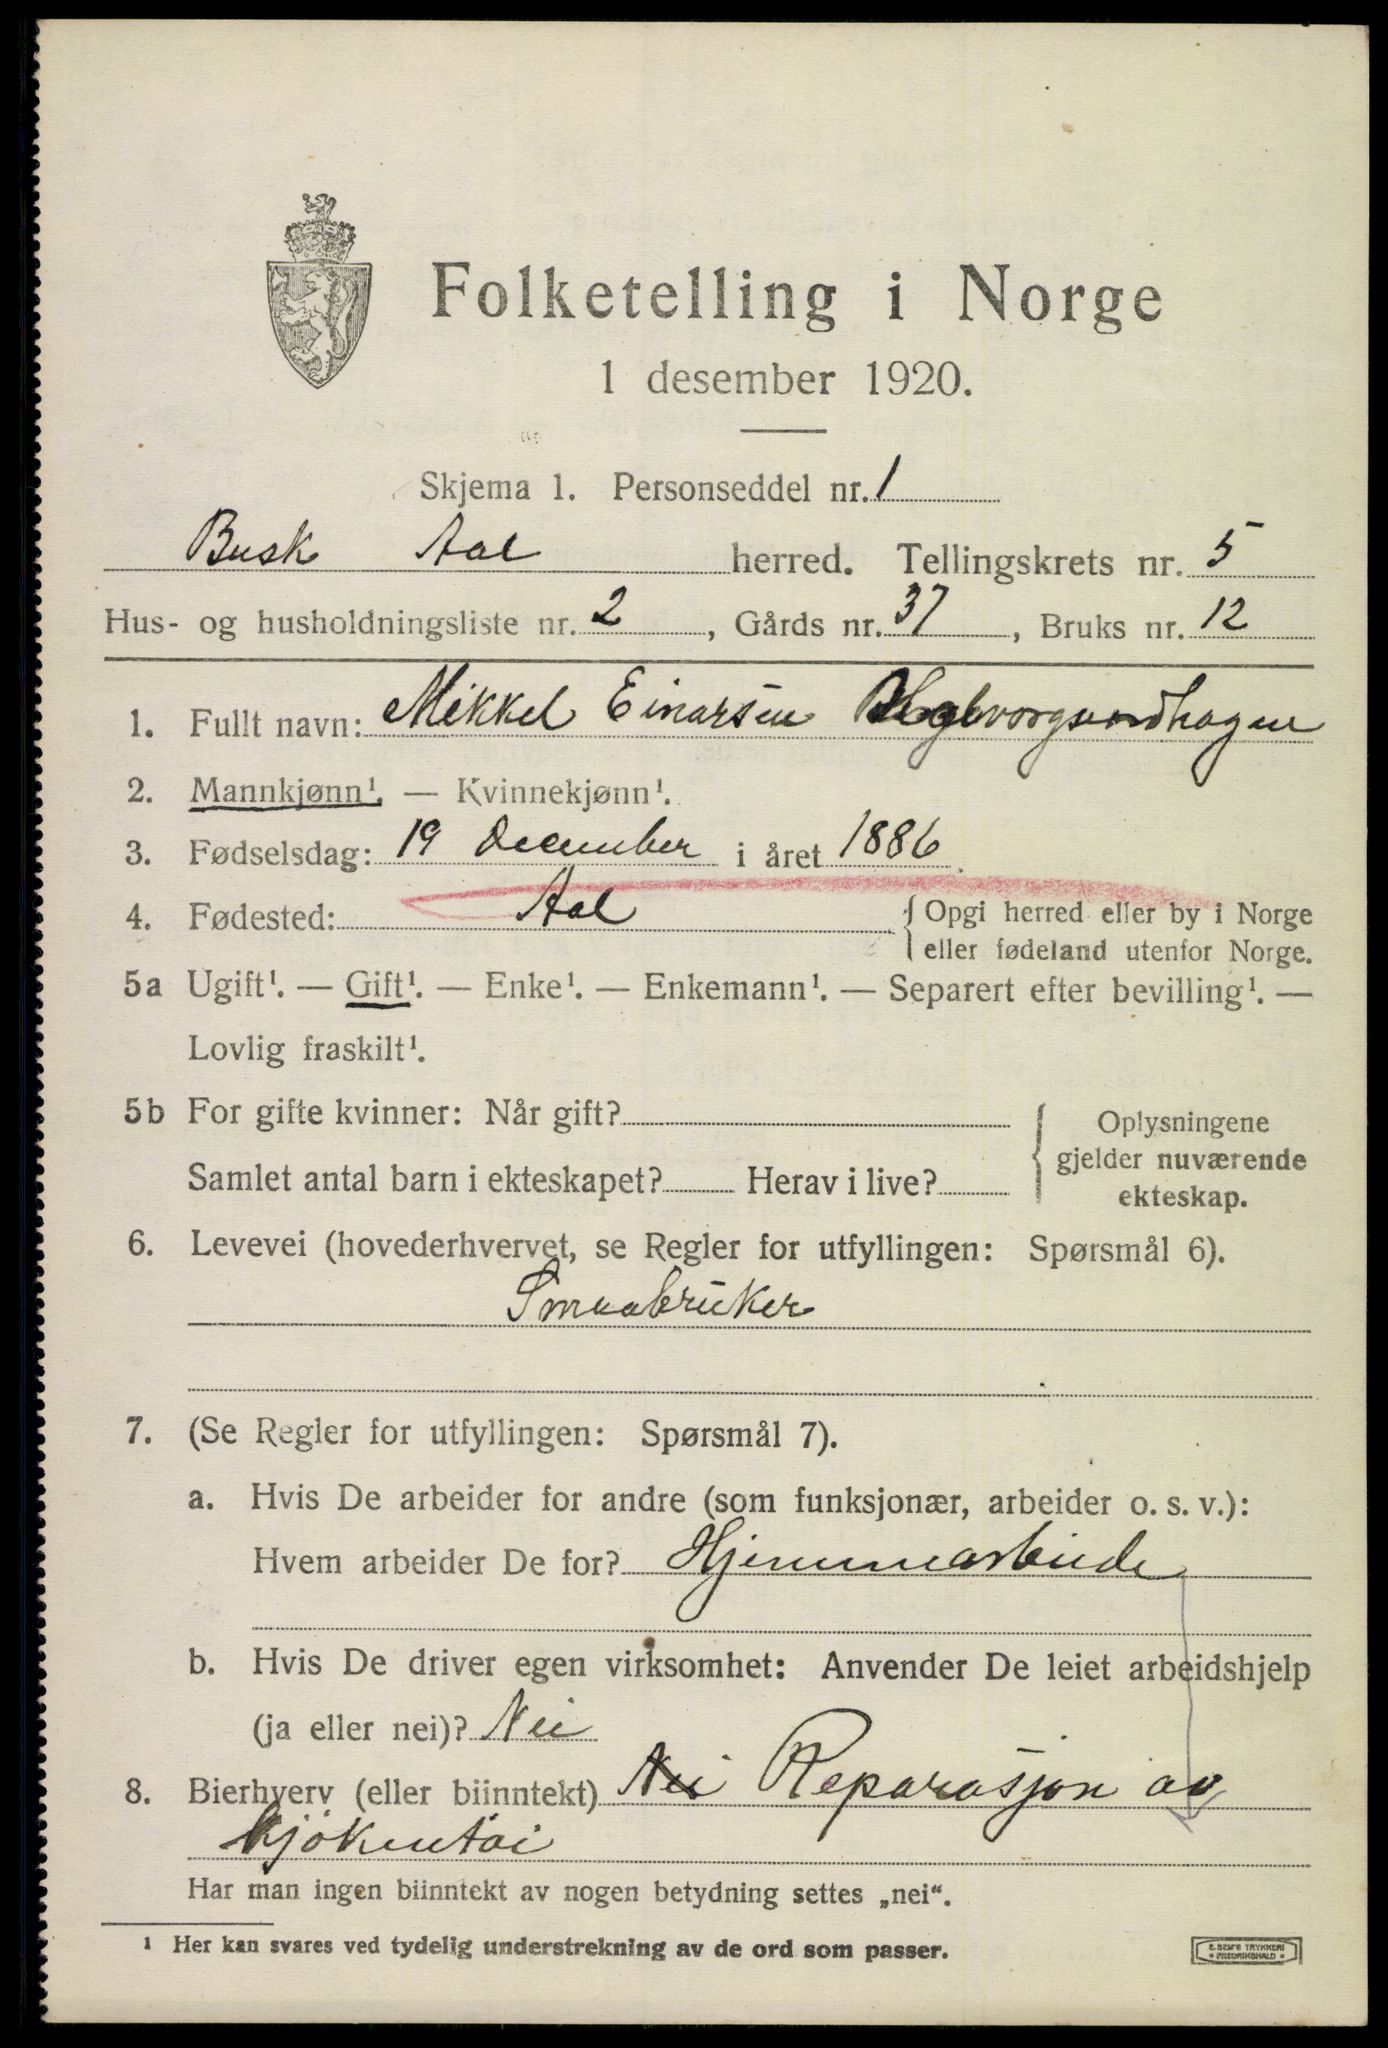 Folketelling i Norge
1 desember 1920.
Skjema 1. Personseddel nr. 1
Busk Aal herred. Tellingskrets nr. 5
Hus- og husholdningsliste nr. 2, Gårds nr. 37, Bruks nr. 12
1. Fullt navn: Mikkel Einarsen
2. Mannkjønn¹. — Kvinnekjønn¹.
3. Fødselsdag: 19 December i året 1886
4. Fødested: Aal { Opgi herred eller by i Norge
eller fødeland utenfor Norge.
5a Ugift¹. — Gift¹. — Enke¹. — Enkemann¹. — Separert efter bevilling¹. —
Lovlig fraskilt¹.
5b For gifte kvinner: Når gift?
Samlet antal barn i ekteskapet? Herav i live?
{ Oplysningene
gjelder nuværende
ekteskap.
6. Levevei (hovederhvervet, se Regler for utfyllingen: Spørsmål 6).
Smaabruker
7. (Se Regler for utfyllingen: Spørsmål 7).
a. Hvis De arbeider for andre (som funksjonær, arbeider o. s. v.):
Hvem arbeider De for? Hjemmearbeide
b. Hvis De driver egen virksomhet: Anvender De leiet arbeidshjelp
(ja eller nei)? Nei
8. Bierhverv (eller biinntekt) Nei Reparasjon av
kjökentöi
Har man ingen biinntekt av nogen betydning settes „nei“.
¹ Her kan svares ved tydelig understrekning av de ord som passer.
E. SEM'S TRYKKERI
FREDRIKSHALD